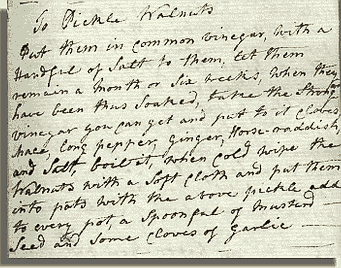 To Pickle Walnuts
Put them in common vinegar, with a
Handful of Salt to them, let them
remain a month or six weeks, when they
have been thus soaked, take the strongest
vinegar you can get and put to it Cloves
Mace, long pepper, ginger, Horse-raddish,
and Salt, boil it, when cold wipe the
Walnuts with a soft cloth and put them
into pots with the above pickle add
to every pot a spoonful of mustard
Seed and some Cloves of Garlic